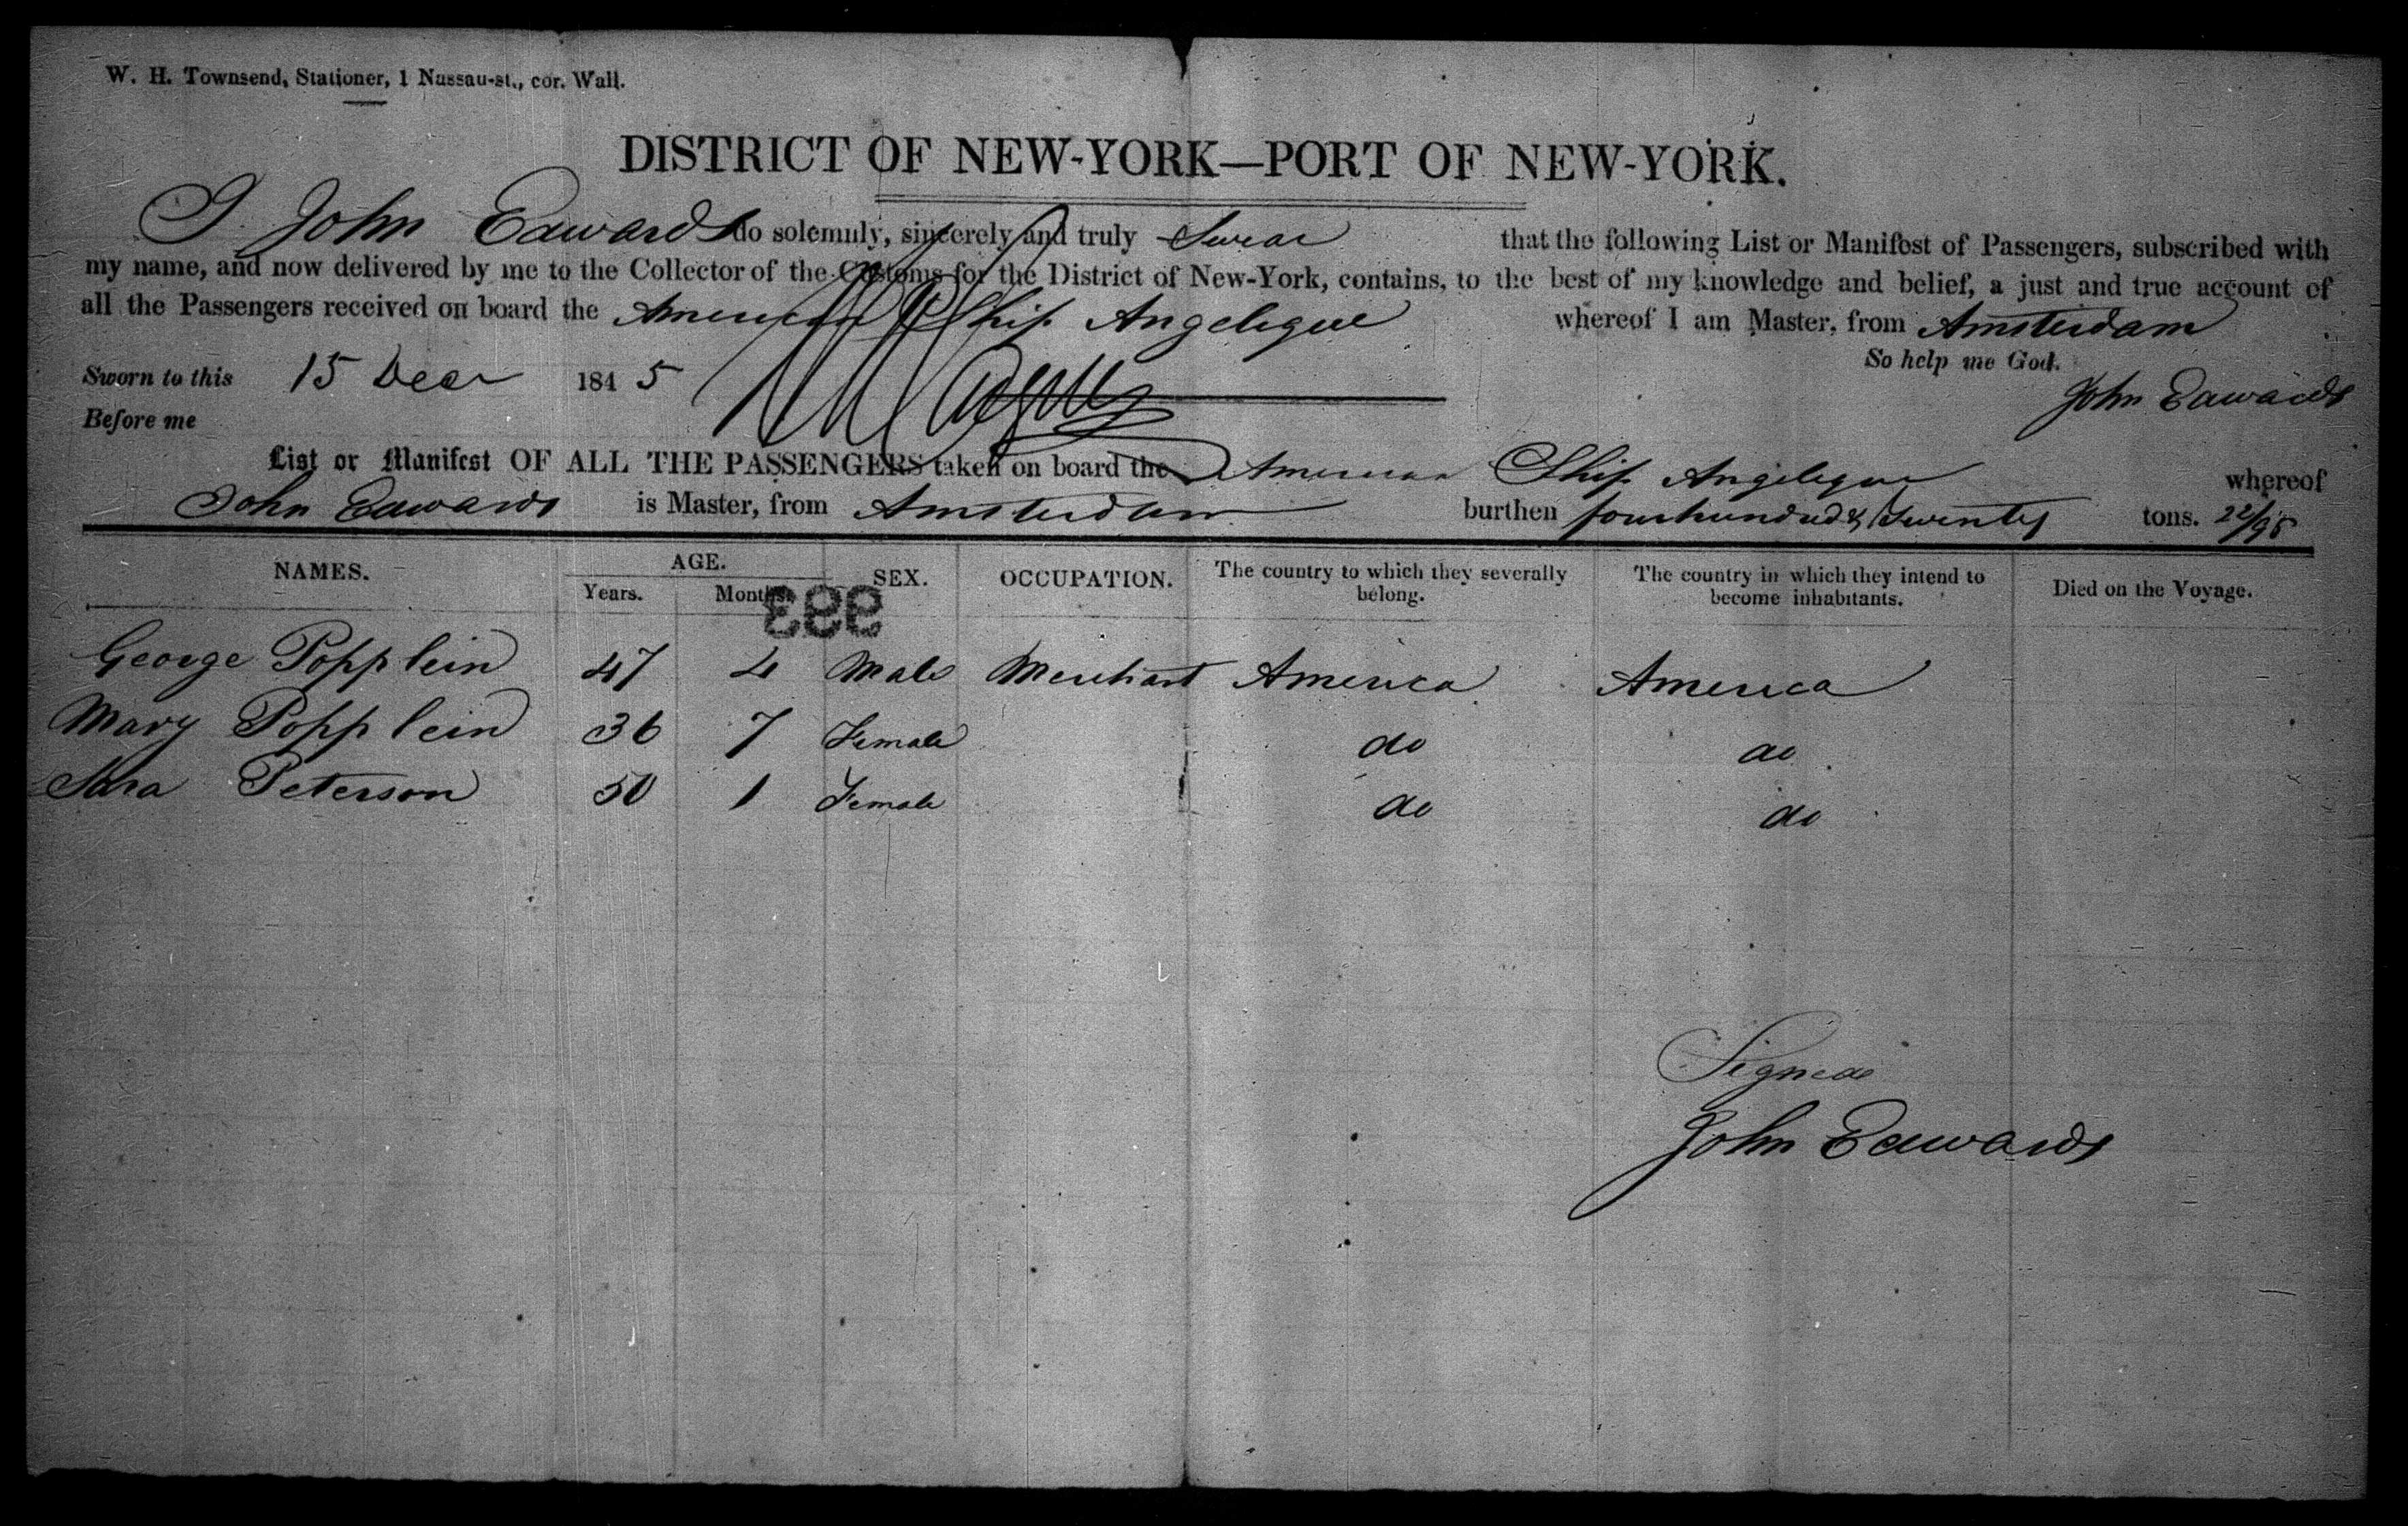 W. H. Townsend, Stationer, 1 Nassau-st., cor. Wall.
DISTRICT OF NEW-YORK—PORT OF NEW-YORK.
I John Edwards do solemnly, sincerely and truly Swear that the following List or Manifest of Passengers, subscribed with
my name, and now delivered by me to the Collector of the Customs for the District of New-York, contains, to the best of my knowledge and belief, a just and true account of
all the Passengers received on board the American Ship Angelique whereof I am Master, from Amsterdam
So help me God.
Sworn to this 15 Decr 1845 John Edwards
Before me
List or Manifest OF ALL THE PASSENGERS taken on board the American Ship Angelique whereof
John Edwards is Master, from Amsterdam burthen four hundred & twenty tons. 22/95
NAMES. AGE. SEX. OCCUPATION. The country to which they severally belong. The country in which they intend to become inhabitants. Died on the Voyage.
Years. Months.
333
George Popplein 47 4 Male Merchant America America
Mary Popplein 36 7 Female do do
Sara Peterson 50 1 Female do do
Signed
John Edwards